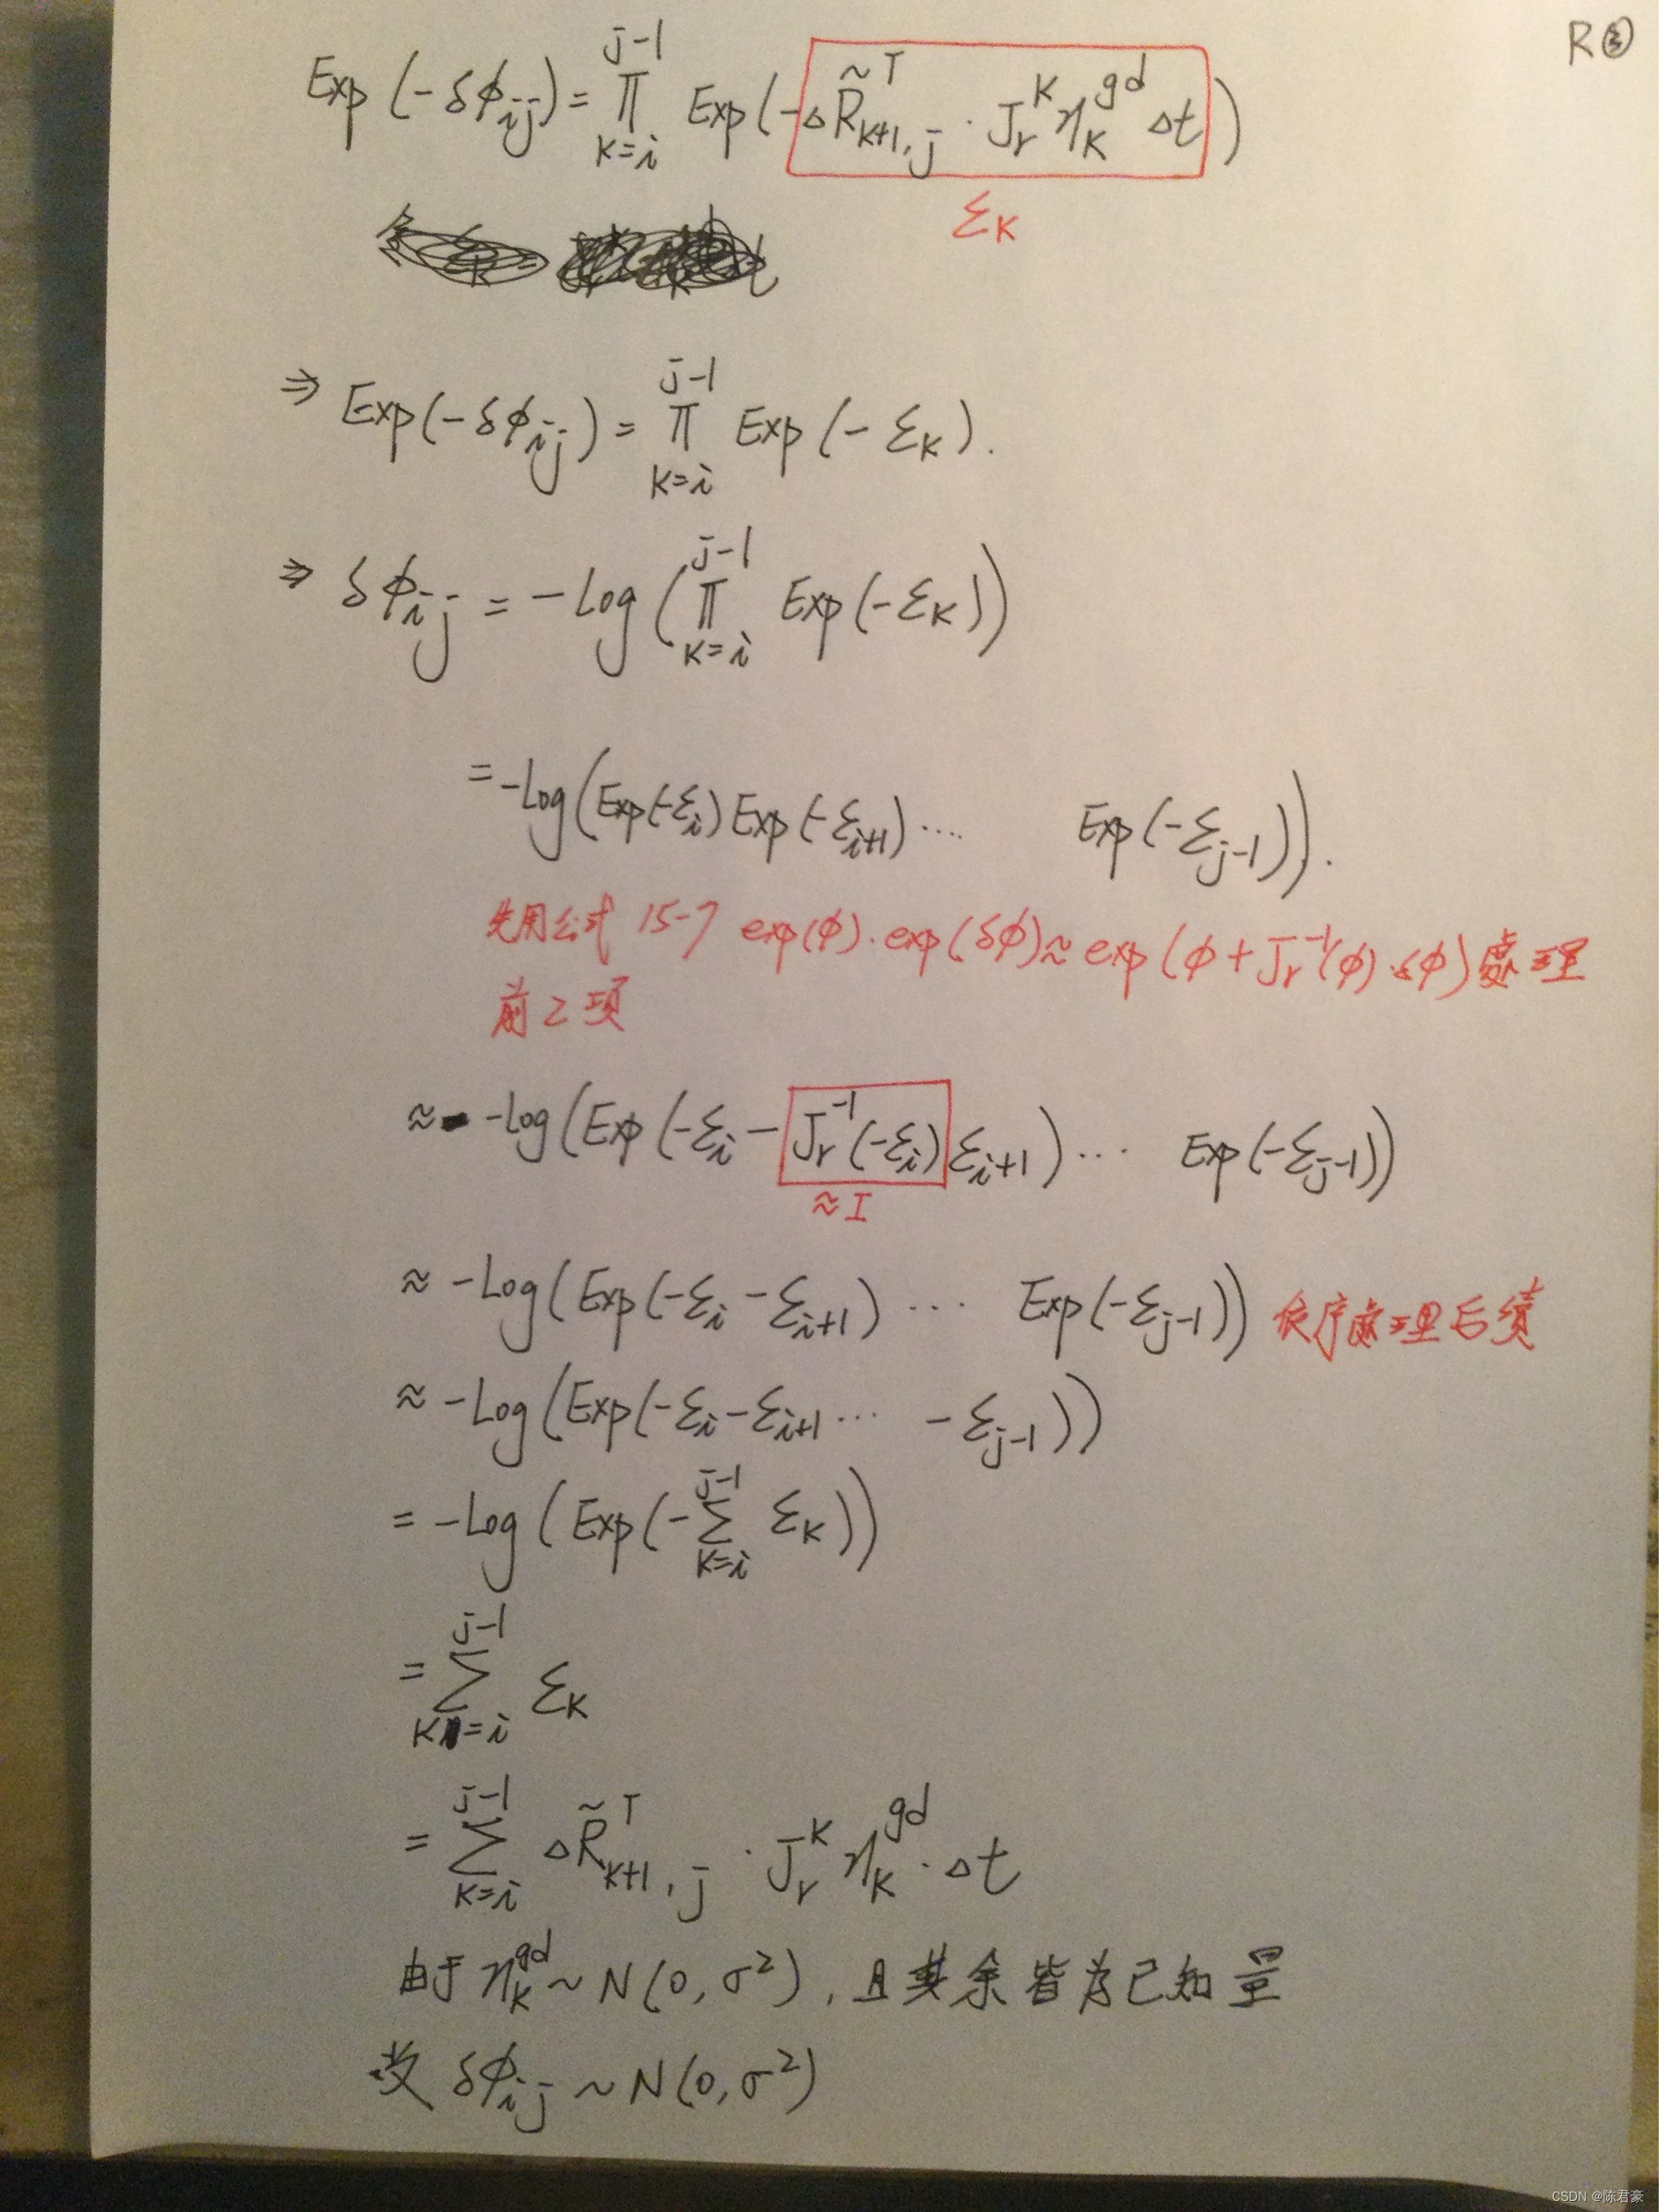 R③
Exp(-δϕ_{ij}) = ∏_{k=i}^{j-1} Exp(-ΔR̃_{k+1,j}^T · J_r^k η_k^{gd} Δt)
ξ_k
⇒ Exp(-δϕ_{ij}) = ∏_{k=i}^{j-1} Exp(-ξ_k).
⇒ δϕ_{ij} = -Log(∏_{k=i}^{j-1} Exp(-ξ_k))
= -Log(Exp(-ξ_i)Exp(-ξ_{i+1})···· Exp(-ξ_{j-1})).
先用公式 15-7 exp(ϕ)·exp(δϕ)≈exp(ϕ+J_r^{-1}(ϕ)·δϕ)處理
前2项
≈ -Log(Exp(-ξ_i-J_r^{-1}(-ξ_i)ξ_{i+1})··· Exp(-ξ_{j-1}))
≈I
≈ -Log(Exp(-ξ_i-ξ_{i+1})··· Exp(-ξ_{j-1})) 依序處理后续
≈ -Log(Exp(-ξ_i-ξ_{i+1}··· -ξ_{j-1}))
= -Log(Exp(-∑_{k=i}^{j-1} ξ_k))
= ∑_{k=i}^{j-1} ξ_k
= ∑_{k=i}^{j-1} ΔR̃_{k+1,j}^T · J_r^k η_k^{gd}·Δt
由于 η_k^{gd} ~ N(0,σ²), 且其余皆为已知量
故 δϕ_{ij} ~ N(0,σ²)
CSDN @陈君豪